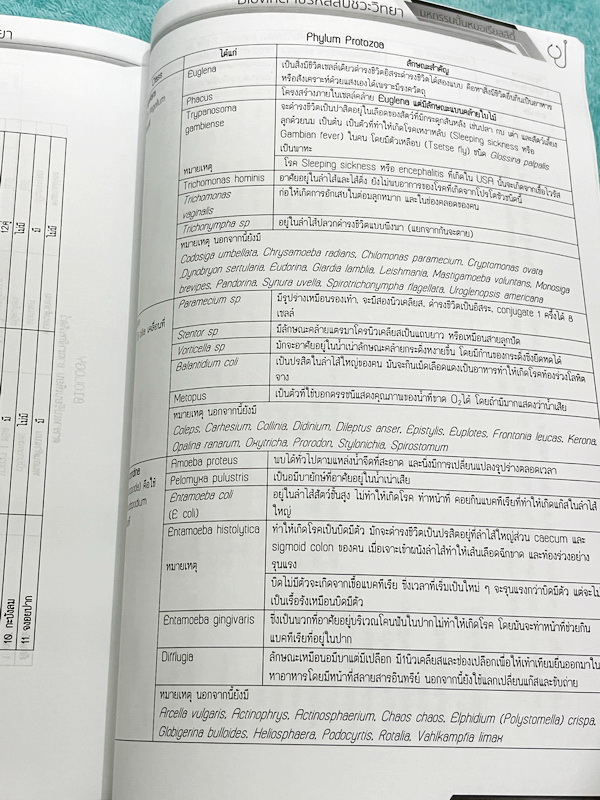 Biovinci ไขรหัสลับชีวะวิทยา
มหกรรมปั้นหมอเรียลลิตี้
Phylum Protozoa
ได้แก่ ลักษณะสำคัญ
Euglena เป็นสิ่งมีชีวิตเซลล์เดียวดำรงชีวิตอิสระดำรงชีวิตได้สองแบบ คือหาสิ่งมีชีวิตอื่นกินเป็นอาหาร
หรือสังเคราะห์ด้วยแสงเองได้เพราะมีรงควัตถุ
Phacus โครงสร้างภายในเซลล์คล้าย Euglena แต่มีลักษณะแบนคล้ายใบไม้
Trypanosoma gambiense จะดำรงชีวิตเป็นปาสิตอยู่ในเลือดของสัตว์ที่มีกระดูกสันหลัง เช่นปลา กบ เต่า และสัตว์เลี้ยง
ลูกด้วยนม เป็นต้น เป็นตัวที่ทำให้เกิดโรคเหงาหลับ (Sleeping sickness หรือ
Gambian fever) ในคน โดยมีตัวเหลือบ (Tsetse fly) ชนิด Glossina palpalis
เป็นพาหะ
หมายเหตุ โรค Sleeping sickness หรือ encephalitis ที่เกิดใน USA นั้นจะเกิดจากเชื้อไวรัส
Trichomonas hominis อาศัยอยู่ในลำไส้และไส้ติ่ง ยังไม่พบอาการของโรคที่เกิดจากโปรโตซัวชนิดนี้
Trichomonas vaginalis ก่อให้เกิดการอักเสบในต่อมลูกหมาก และในช่องคลอดของคน
Trichonympha sp อยู่ในลำไส้ปลวกดำรงชีวิตแบบพึ่งพา (แยกจากกันจะตาย)
หมายเหตุ นอกจากนี้ยังมี
Codosiga umbellata, Chrysamoeba radians, Chilomonas paramecium, Cryptomonas ovata
,Dynobryon sertularia, Eudorina, Giardia lamblia, Leishmania, Mastigamoeba voluntans, Monosiga
brevipes, Pandorina, Synura uvella, Spirotrichonympha flagellata, Uroglenopsis americana
Paramecium sp มีรูปร่างเหมือนรองเท้า, จะมีสองนิวเคลียส, ดำรงชีวิตเป็นอิสระ, conjugate 1 ครั้งได้ 8
เซลล์
Stentor sp มีลักษณะคล้ายแตรมาโครนิวเคลียสเป็นแถบยาว หรือเหมือนสายลูกปัด
Vorticella sp มักจะอาศัยอยู่ในน้ำเน่าลักษณะคล้ายกระดิ่งหงายขึ้น โดยมีก้านของกระดิ่งซึ่งยืดหดได้
Balantidium coli เป็นปรสิตในลำไส้ใหญ่ของคน มันจะกินเม็ดเลือดแดงเป็นอาหารทำให้เกิดโรคท้องร่วงโลหิต
จาง
Metopus เป็นตัวที่ใช้บอกดรรชนีแสดงคุณภาพของน้ำที่ขาด O2ได้ โดยถ้ามีมากแสดงว่าน้ำเสีย
หมายเหตุ นอกจากนี้ยังมี
Coleps, Carhesium, Collinia, Didinium, Dileptus anser, Epistylis, Euplotes, Frontonia leucas, Kerona,
Opalina ranarum, Oxytricha, Prorodon, Stylonichia, Spirostomum
Amoeba proteus พบได้ทั่วไปตามแหล่งน้ำจืดที่สะอาด และนิ่งมีการเปลี่ยนแปลงรูปร่างตลอดเวลา
Pelomyxa pulustris เป็นอมีบายักษ์ที่อาศัยอยู่ในน้ำเน่าเสีย
Entamoeba coli (E coli) อยู่ในลำไส้สัตว์ชั้นสูง ไม่ทำให้เกิดโรค ทำหน้าที่ คอยกินแบคทีเรียที่ทำให้เกิดแก๊สในลำไส้
ใหญ่
Entamoeba histolytica ทำให้เกิดโรคเป็นบิดมีตัว มักจะดำรงชีวิตเป็นปรสิตอยู่ที่ลำไส้ใหญ่ส่วน caecum และ
sigmoid colon ของคน เมื่อเจาะเข้าผนังลำไส้ทำให้เส้นเลือดฉีกขาด และท้องร่วงอย่าง
รุนแรง
หมายเหตุ บิดไม่มีตัวจะเกิดจากเชื้อแบคทีเรีย ซึ่งเวลาที่เริ่มเป็นใหม่ ๆ จะรุนแรงกว่าบิดมีตัว แต่จะไม่
เป็นเรื้อรังเหมือนบิดมีตัว
Entamoeba gingivaris ซึ่งเป็นพวกที่อาศัยอยู่บริเวณโคนฟันในปากไม่ทำให้เกิดโรค โดยมันจะทำหน้าที่ช่วยกิน
แบคทีเรียที่อยู่ในปาก
Difflugia ลักษณะเหมือนอมีบาแต่มีเปลือก มี1นิวเคลียสและช่องเปลือกเพื่อให้เท้าเทียมยื่นออกมาใน
หาอาหารโดยมีหน้าที่สลายสารอินทรีย์ นอกจากนี้ยังใช้แลกเปลี่ยนแก๊สและขับถ่าย
หมายเหตุ นอกจากนี้ยังมี
Arcella vulgaris, Actinophrys, Actinosphaerium, Chaos chaos, Elphidium (Polystomella) crispa,
Globigerina bulloides, Heliosphaera, Podocyrtis, Rotalia, Vahlkampfia limax
10 กะปังลม ไม่มี
11 จงอยปาก